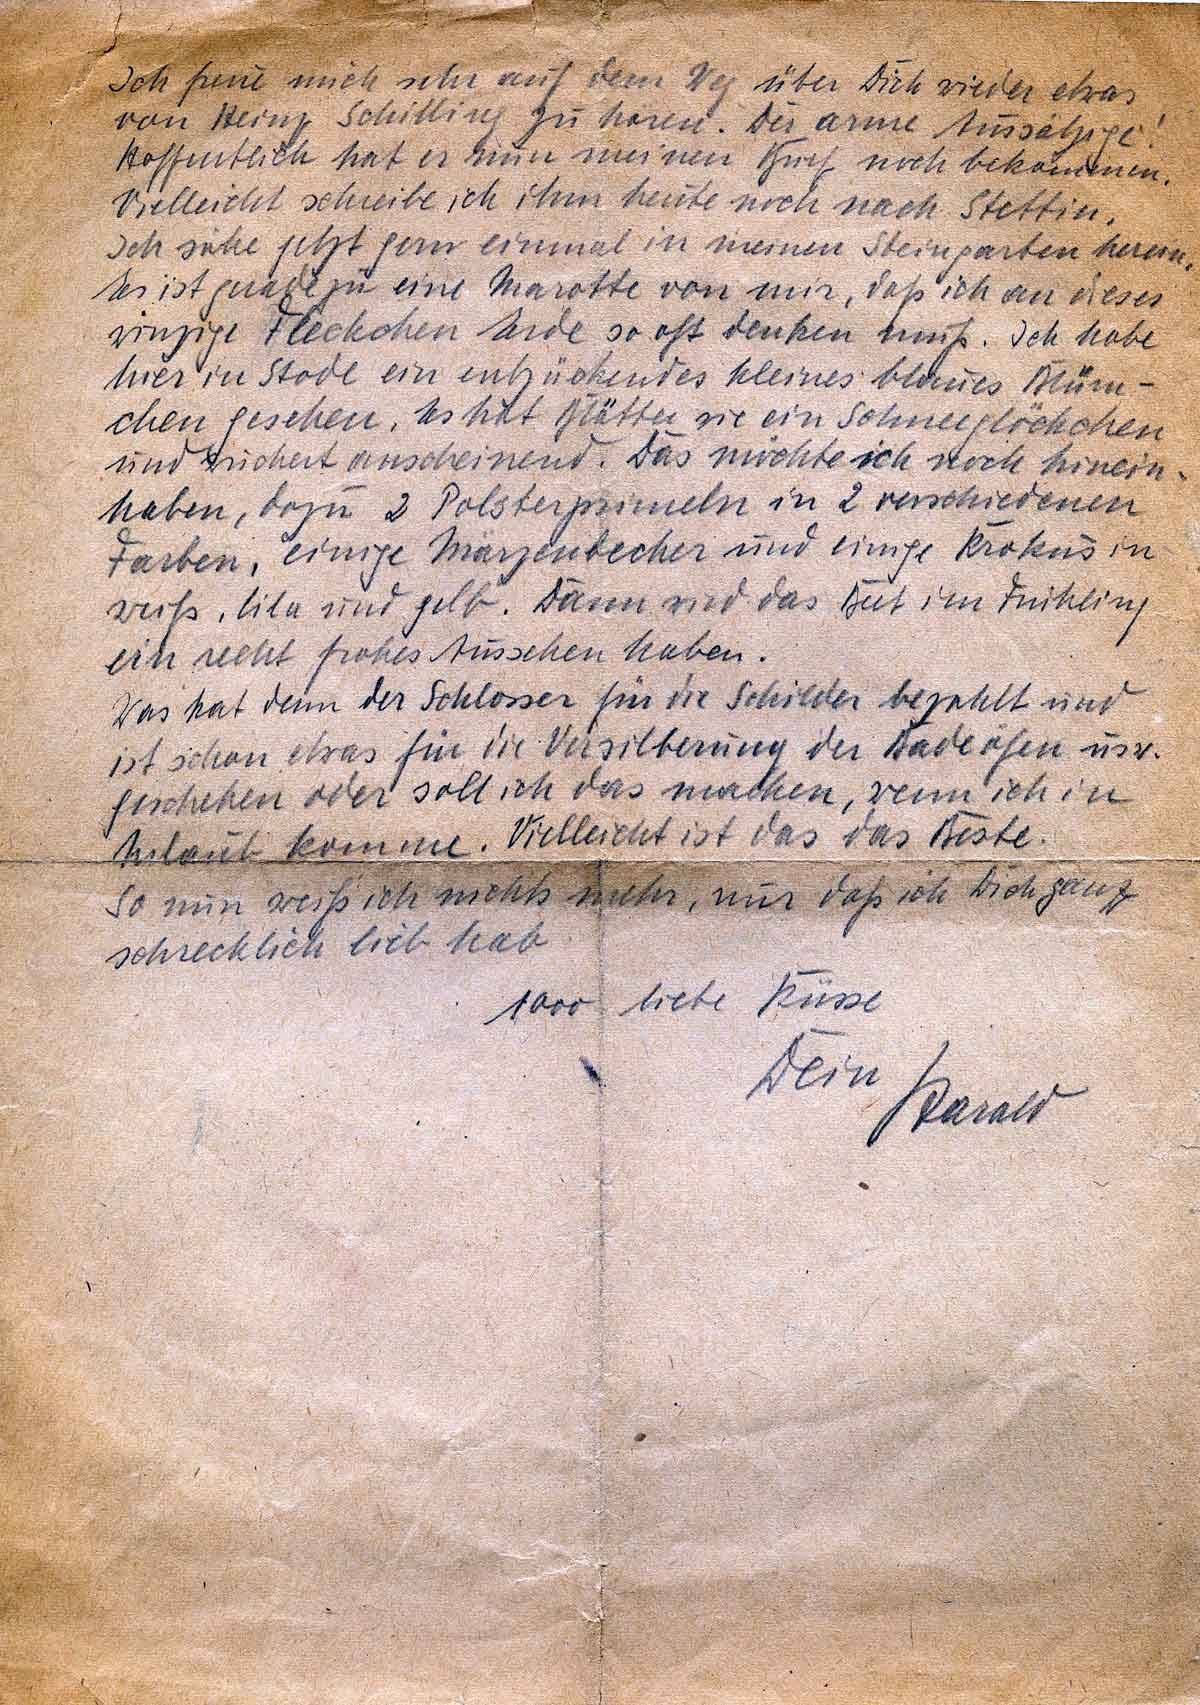 Ich freue mich sehr auf dem Weg über Dich wieder etwas
von Heinz Schilling zu hören. Der arme Aussätzige!
Hoffentlich hat er nun meinen Brief noch bekommen.
Vielleicht schreibe ich ihm heute noch nach Stettin.
Ich sähe jetzt gern einmal in meinen Steingarten herein.
Es ist geradezu eine Marotte von mir, daß ich an dieses
winzige Fleckchen Erde so oft denken muß. Ich habe
hier in Stade ein entzückendes kleines blaues Blüm-
chen gesehen. Es hat Blätter wie ein Schneeglöckchen
und wuchert anscheinend. Das möchte ich noch hinein-
haben, dazu 2 Polsterprimeln in 2 verschiedenen
Farben, einige Märzenbecher und einige Krokus in
weiß, lila und gelb. Dann wird das Beet im Frühling
ein recht frohes Aussehen haben.
Was hat denn der Schlosser für die Schilder bezahlt und
ist schon etwas für die Versilberung der Badeöfen usw.
geschehen oder soll ich das machen, wenn ich in
Urlaub komme. Vielleicht ist das das Beste.
So nun weiß ich nichts mehr, nur daß ich Dich ganz
schrecklich lieb hab
1000 liebe Küsse
Dein Harald